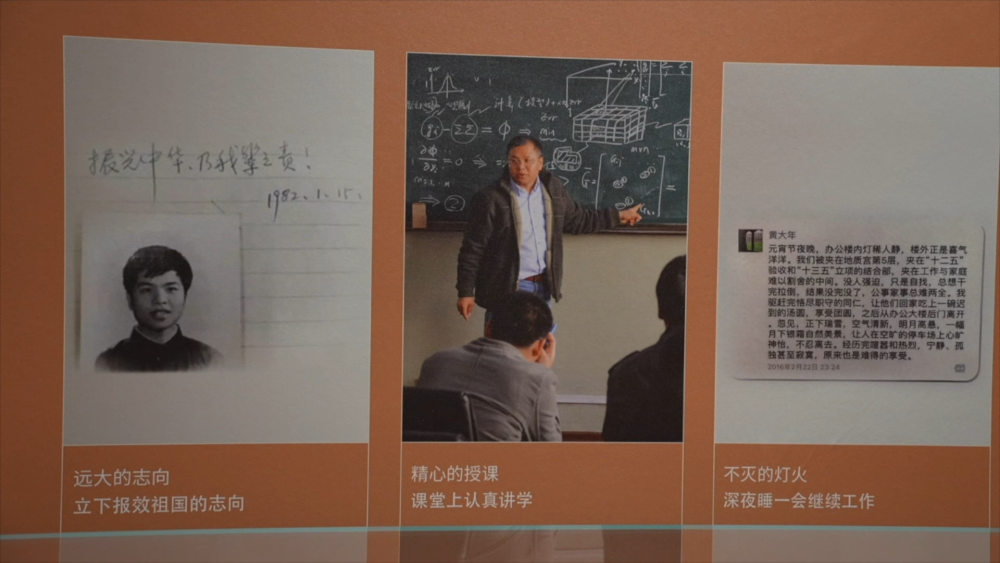 振兴中华、乃我辈之责!
1982.1.15.
远大的志向
立下报效祖国的志向
精心的授课
课堂上认真讲学
黄大年
元宵节夜晚，办公楼内灯稀人静，楼外正是喜气
洋洋。我们被夹在地质宫第5层，夹在“十二五”
验收和“十三五”立项的结合部，夹在工作与家庭
难以割舍的中间。没人强迫，只是自找，总想干
完拉倒，结果没完没了，公事家事总难两全。我
驱赶完恪尽职守的同仁，让他们回家吃上一碗迟
到的汤圆，享受团圆，之后从办公大楼后门离开
。忽见，正下瑞雪，空气清新，明月高悬，一幅
月下银霜自然美景，让人在空旷的停车场上心旷
神怡，不忍离去。经历完喧嚣和热烈，宁静、孤
独甚至寂寞，原来也是难得的享受。
2016年2月22日 23:24
不灭的灯火
深夜睡一会继续工作